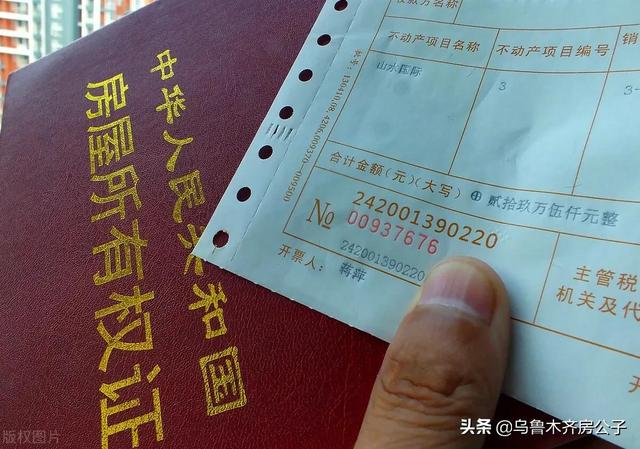 中华人民共和国
房屋所有权证
收款方名称
不动产项目名称
不动产项目编号
销
山水国际
3
3-
批准号: 130410.08.4206.009370-009500
合计金额(元)(大写) ⊕ 贰拾玖万伍仟元整
242001390220
№ 00937676
242001390220
开票人: 蒋萍
主管税
机关及代
开
版权图片
头条 @乌鲁木齐房公子